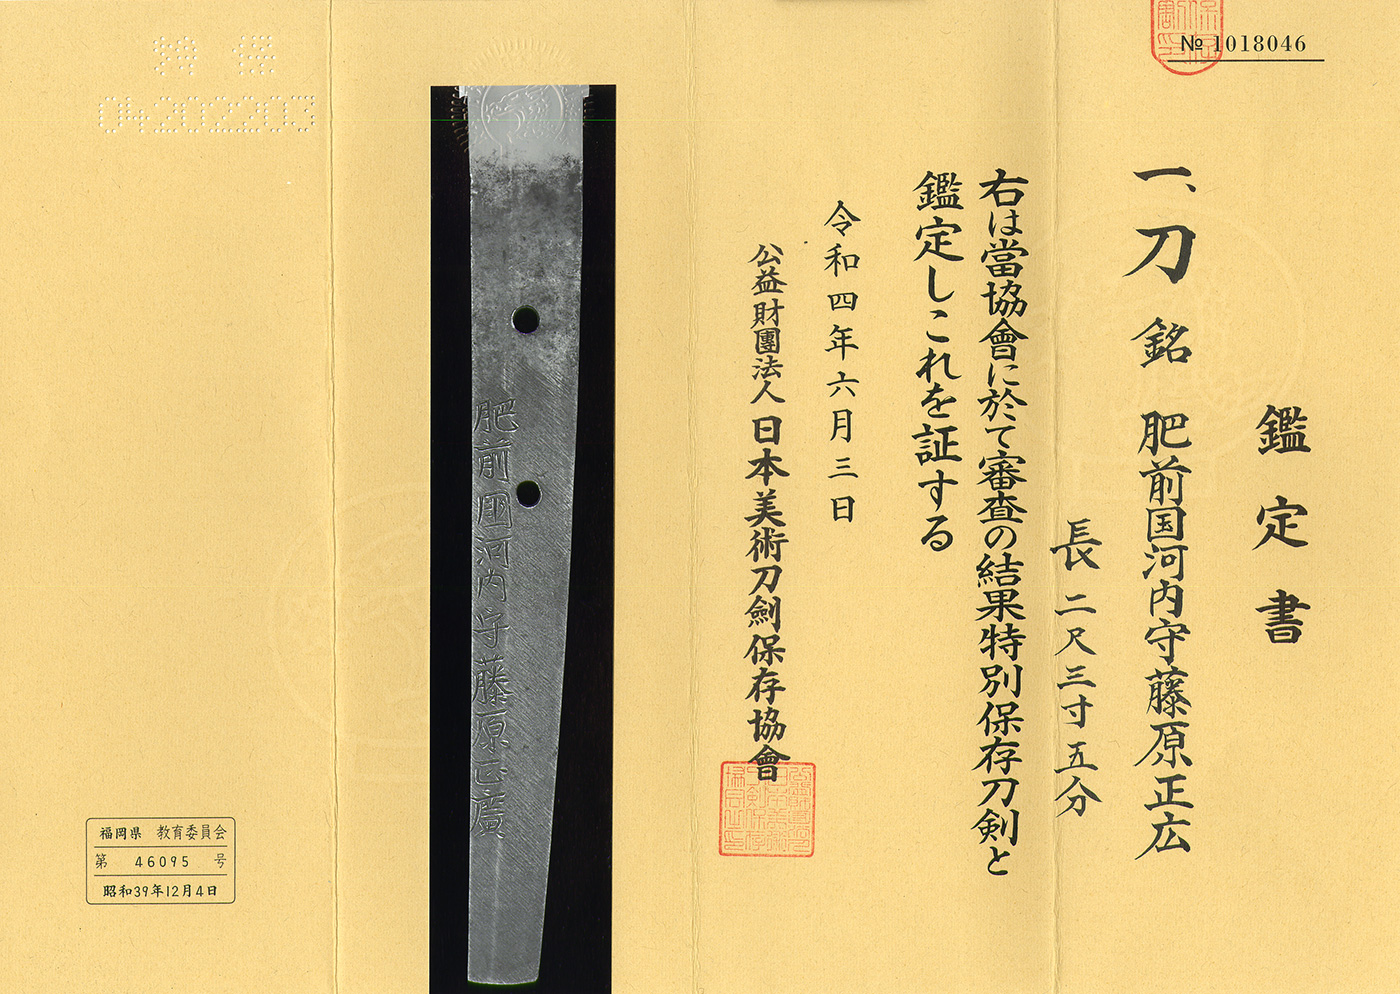 № 1018046
鑑定書
一、刀 銘 肥前国河内守藤原正広
長二尺三寸五分
右は當協會に於て審査の結果特別保存刀剣と
鑑定しこれを証する
令和四年六月三日
公益財團法人日本美術刀劍保存協會
肥前國河内守藤原正廣
04202203
福岡県 教育委員会
第 46095 号
昭和39年12月4日